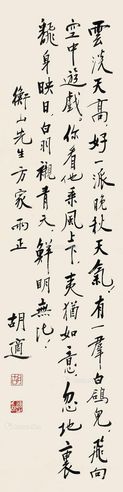 雲淡天高好一派晚秋天氣有一羣白鴿兒飛向
空中遊戲你看他乘風上下夷猶如意忽地裏
翻身映日白羽襯青天鮮明無比
衡山先生方家雨正
胡適